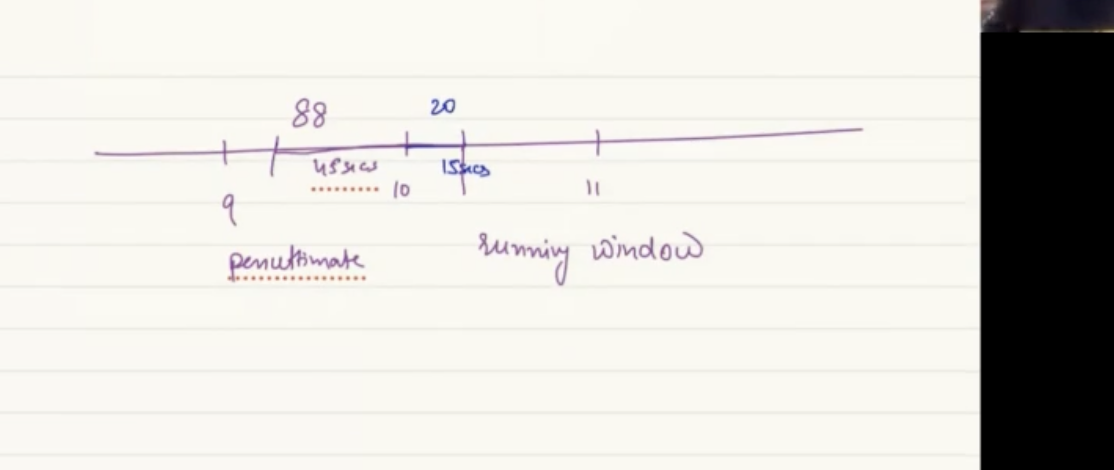 88 20
45secs 15secs
9 10 11
penultimate running window